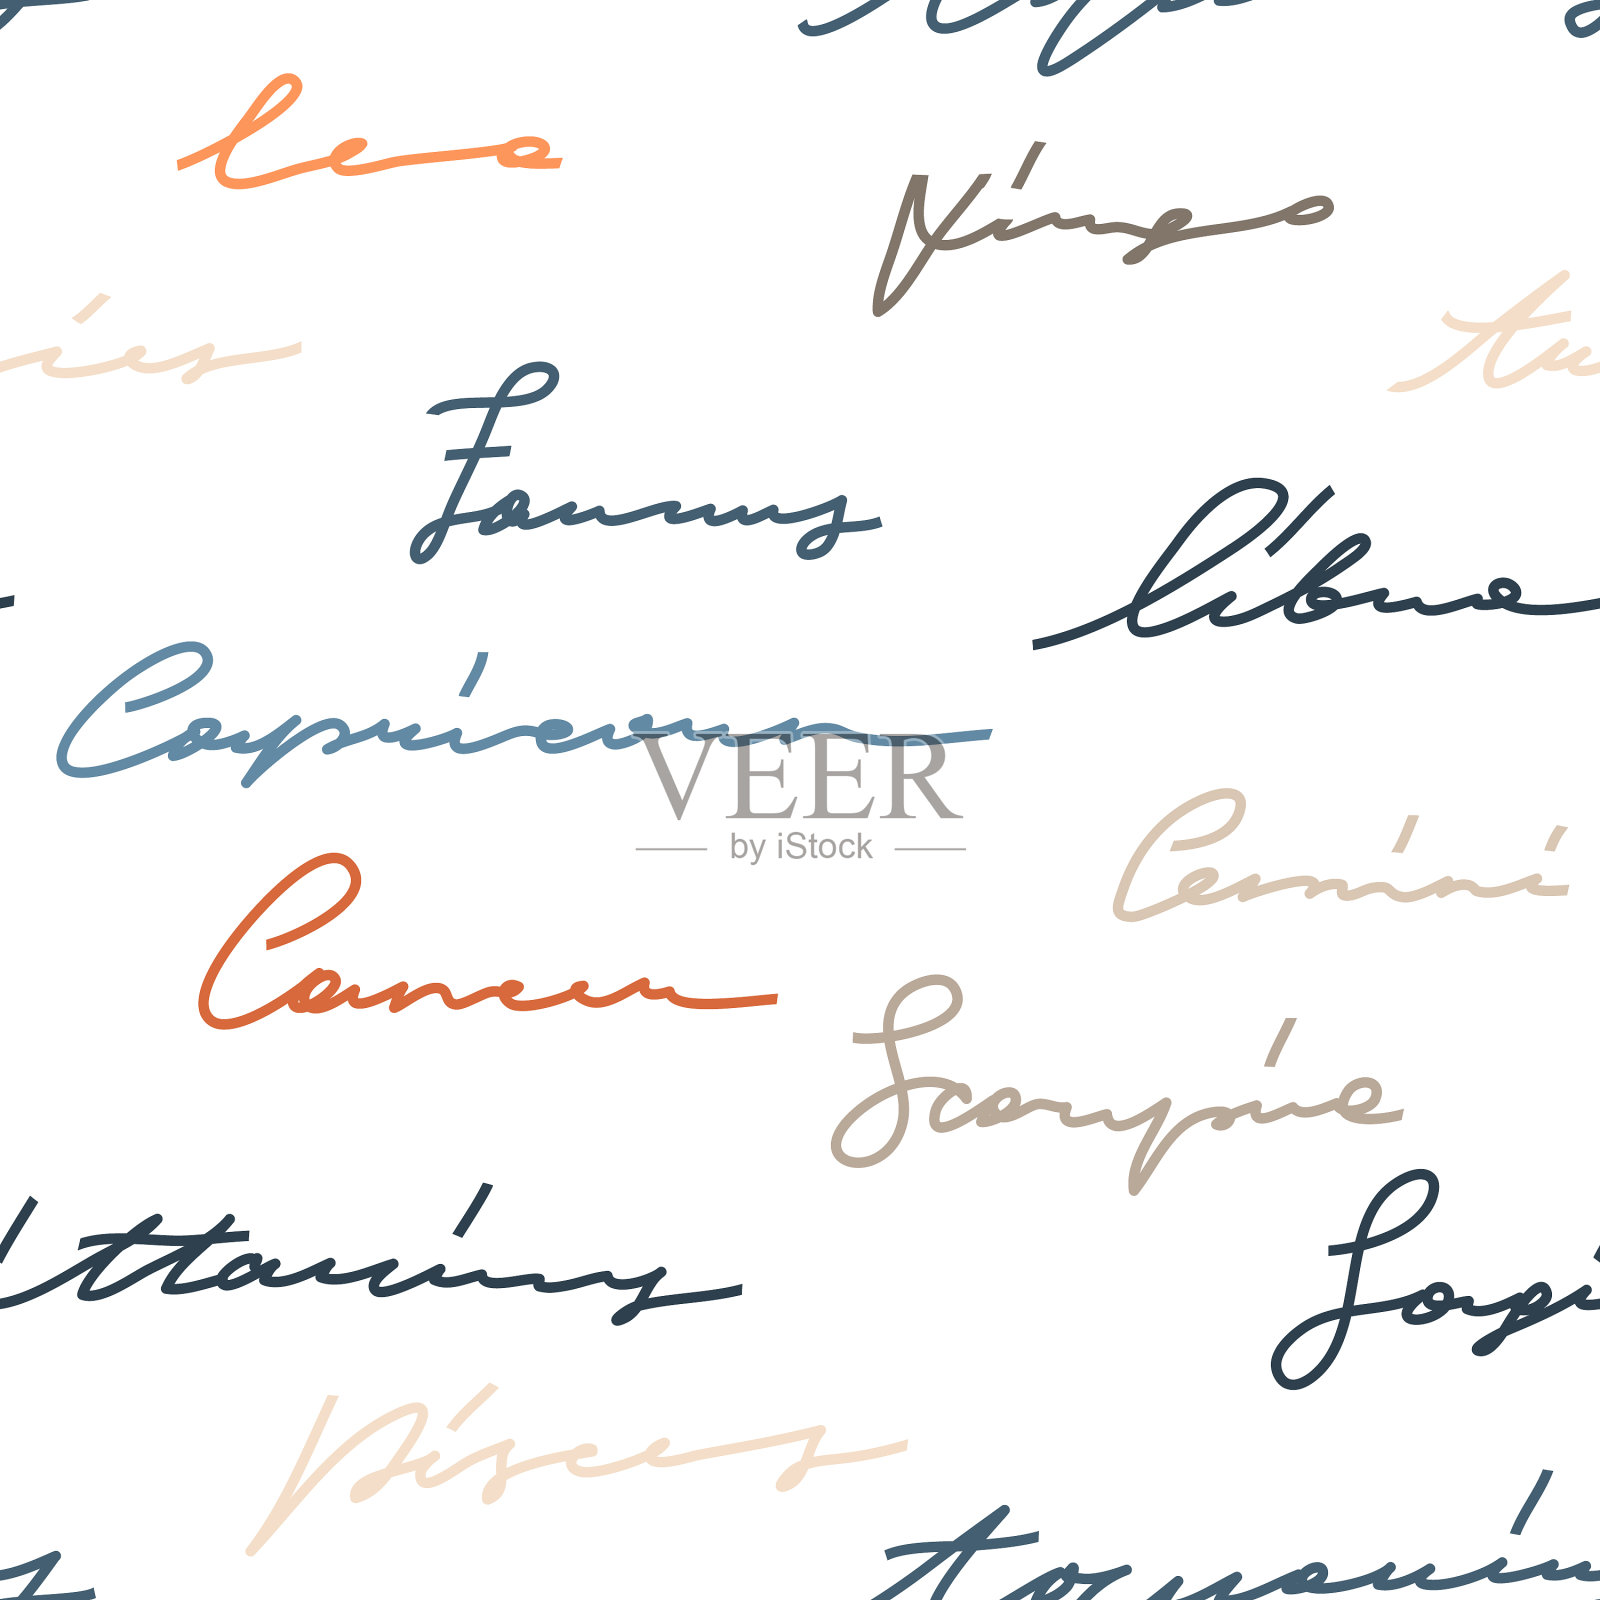 Leo
Virgo
ries
Ar
Taurus
Libra
Capricorn
VEER
by iStock
Gemini
Cancer
Scorpio
ittarius
Sagi
Pisces
Aquarius